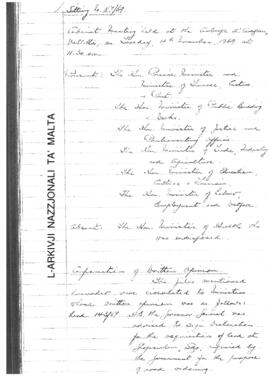 Sitting No. 57/69
Cabinet Meeting held at the Auberge d'Aragon,
Valletta, on Tuesday, 4th November, 1969 at
11.30 am.
Present: The Hon. Prime Minister and
Minister of Finance, Customs
& Port.
The Hon. Minister of Public Building
& Works.
The Hon. Minister of Justice and
Parliamentary Affairs.
The Hon. Minister of Trade, Industry
and Agriculture.
The Hon. Minister of Education,
Culture & Tourism.
The Hon. Minister of Labour,
Employment and Welfare.
Absent: The Hon. Minister of Health who
was indisposed.
Confirmation of Written Opinions
The files mentioned
hereunder were circulated to Ministers
whose written opinion was as follows:
Lands H.E. the Governor General was
advised to sign Declaration
for the acquisition of land at
required by
the government for the purpose
of road widening.
L-ARKIVJI NAZZJONALI TA' MALTA